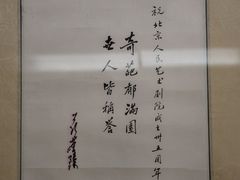 祝北京人民艺术剧院成立卅五周年
奇葩都满园
世人皆称誉